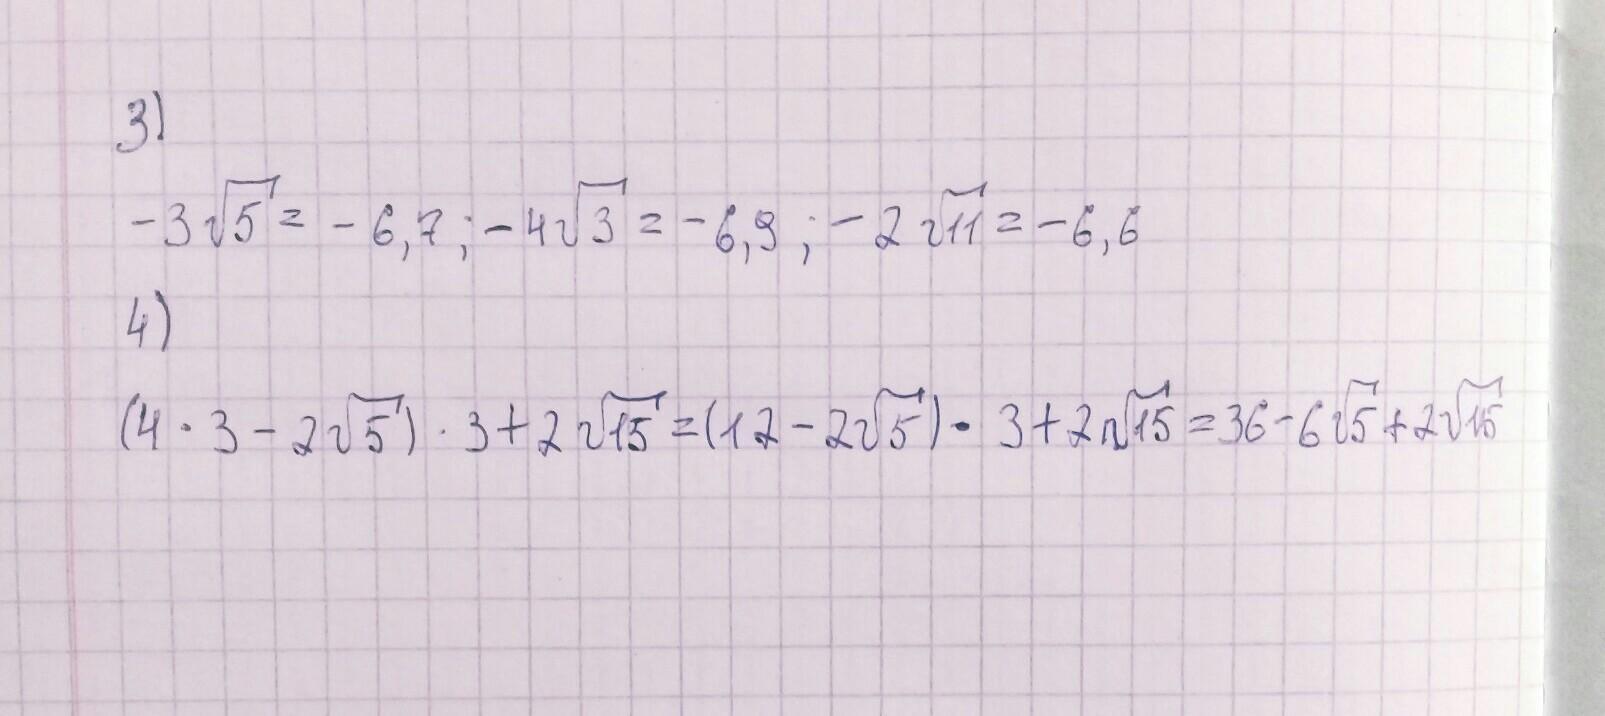 3)
-3√5 = -6,7; -4√3 = -6,9; -2√11 = -6,6
4)
(4·3-2√5)·3+2√15=(12-2√5)·3+2√15=36-6√5+2√15